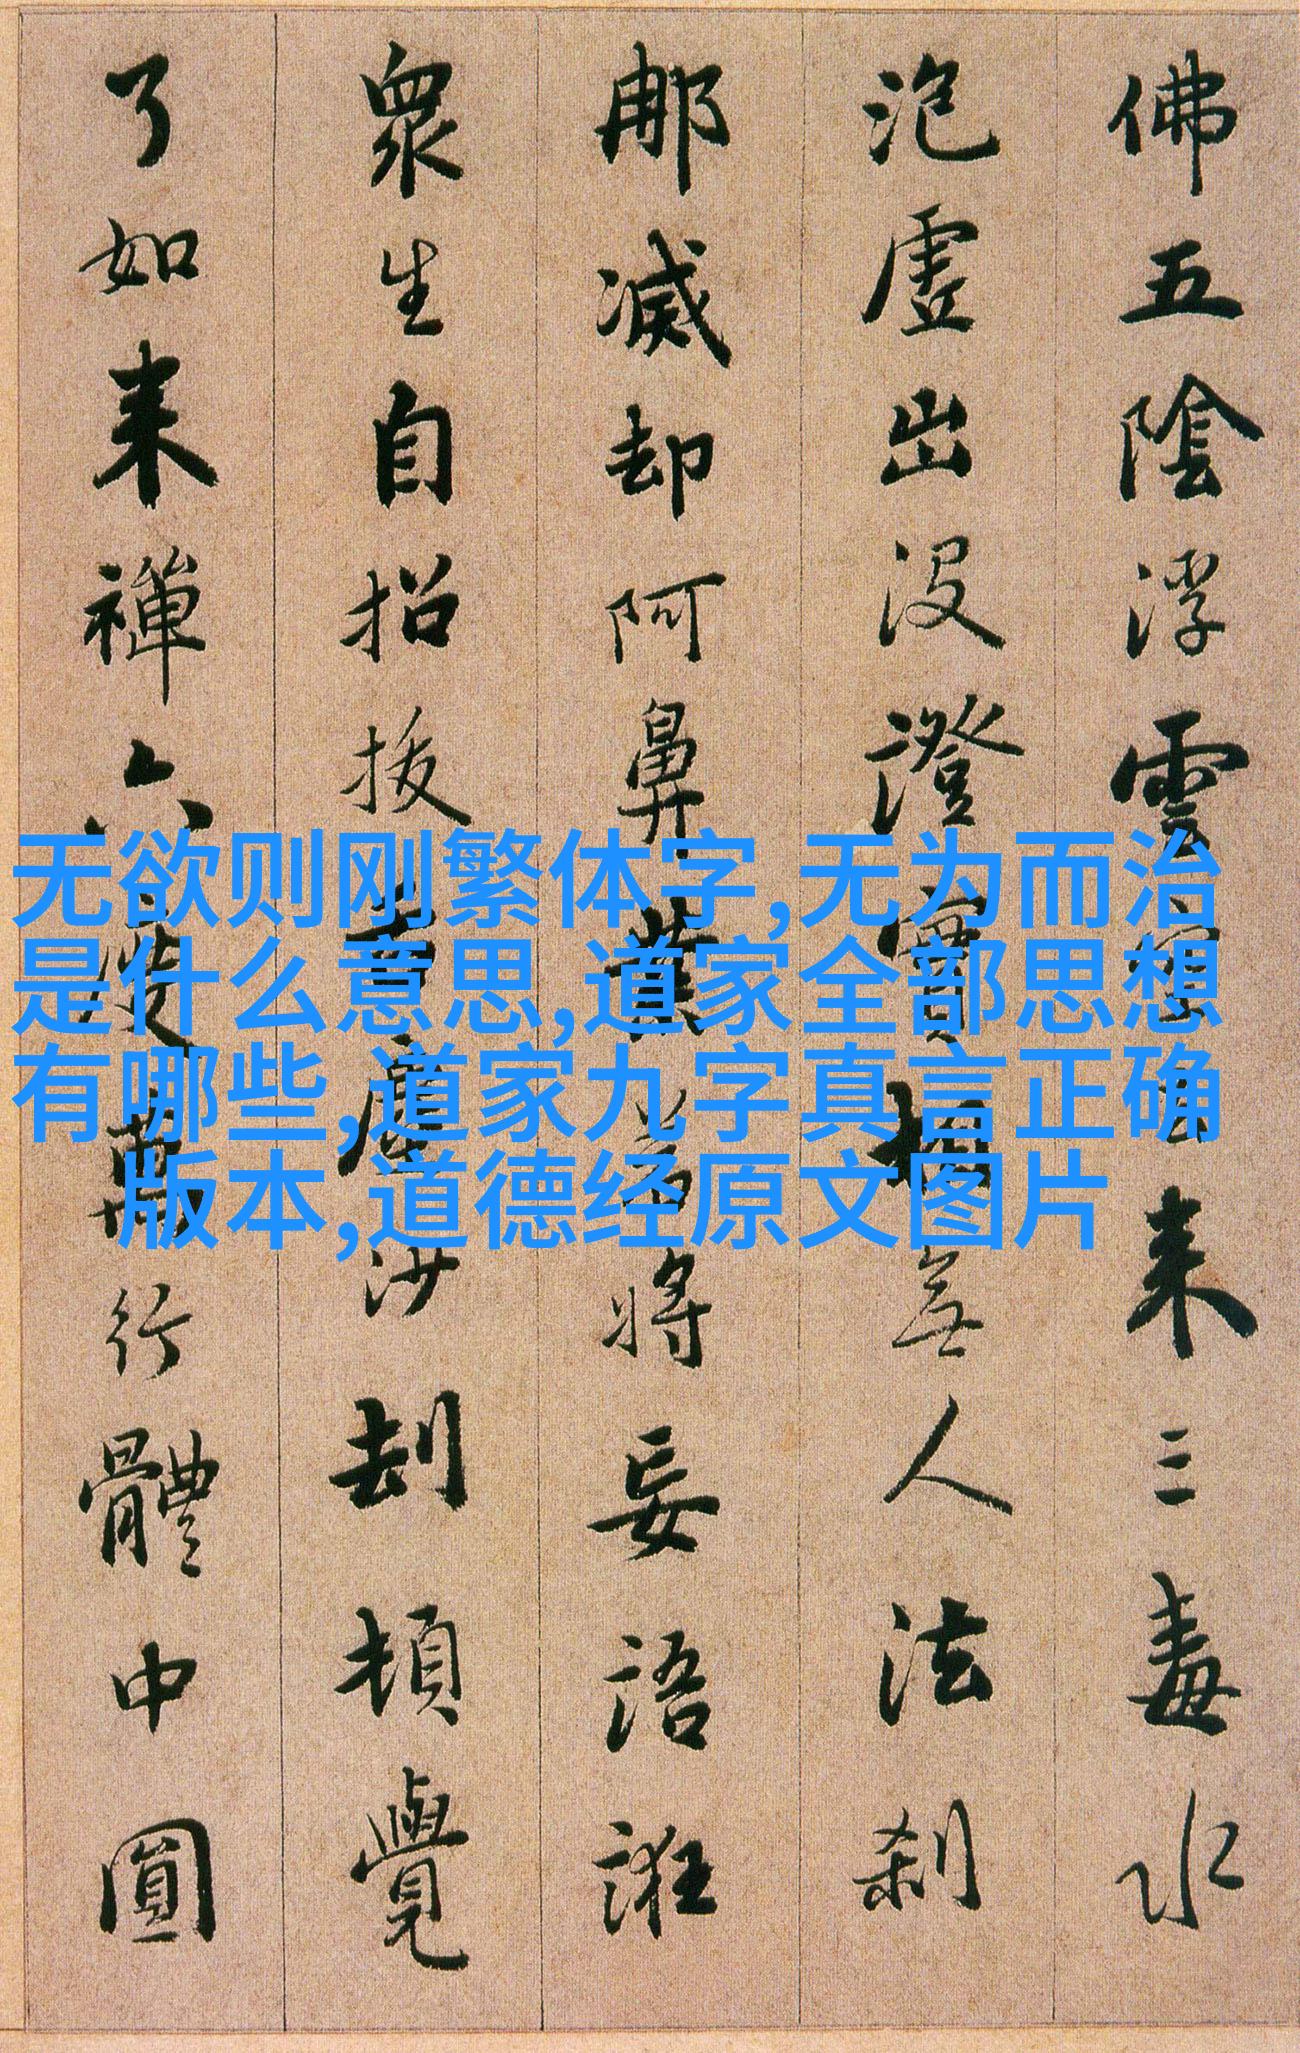 佛五陰浮雲空去来三毒水
泡虛出没證實相無人法刹
那滅却阿鼻業若將妄語誑
衆生自招拔舌塵沙劫頓覺
了如来禪六度萬行體中圓
无欲则刚繁体字,无为而治
是什么意思,道家全部思想
有哪些,道家九字真言正确
版本,道德经原文图片